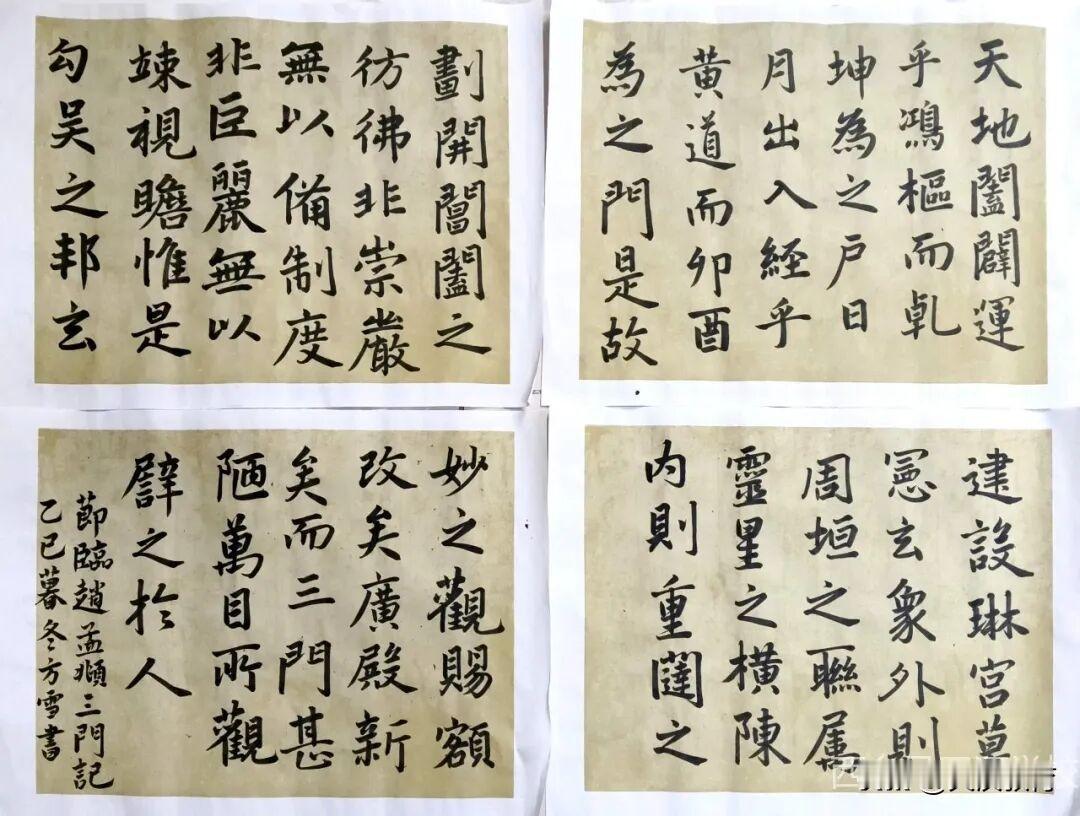 天地闔闢運
乎鴻樞而乹
坤為之戶日
月出入經乎
黃道而卯酉
為之門是故
建設琳宮摹
憲玄象外則
周垣之聯屬
靈星之橫陳
內則重闥之
劃開閶闔之
彷彿非崇嚴
無以備制度
非巨麗無以
竦視瞻惟是
勾吳之邦玄
妙之觀賜額
改矣廣殿新
矣而三門甚
陋萬目所觀
譬之於人
節臨趙孟頫三門記
乙巳暮冬方雪書